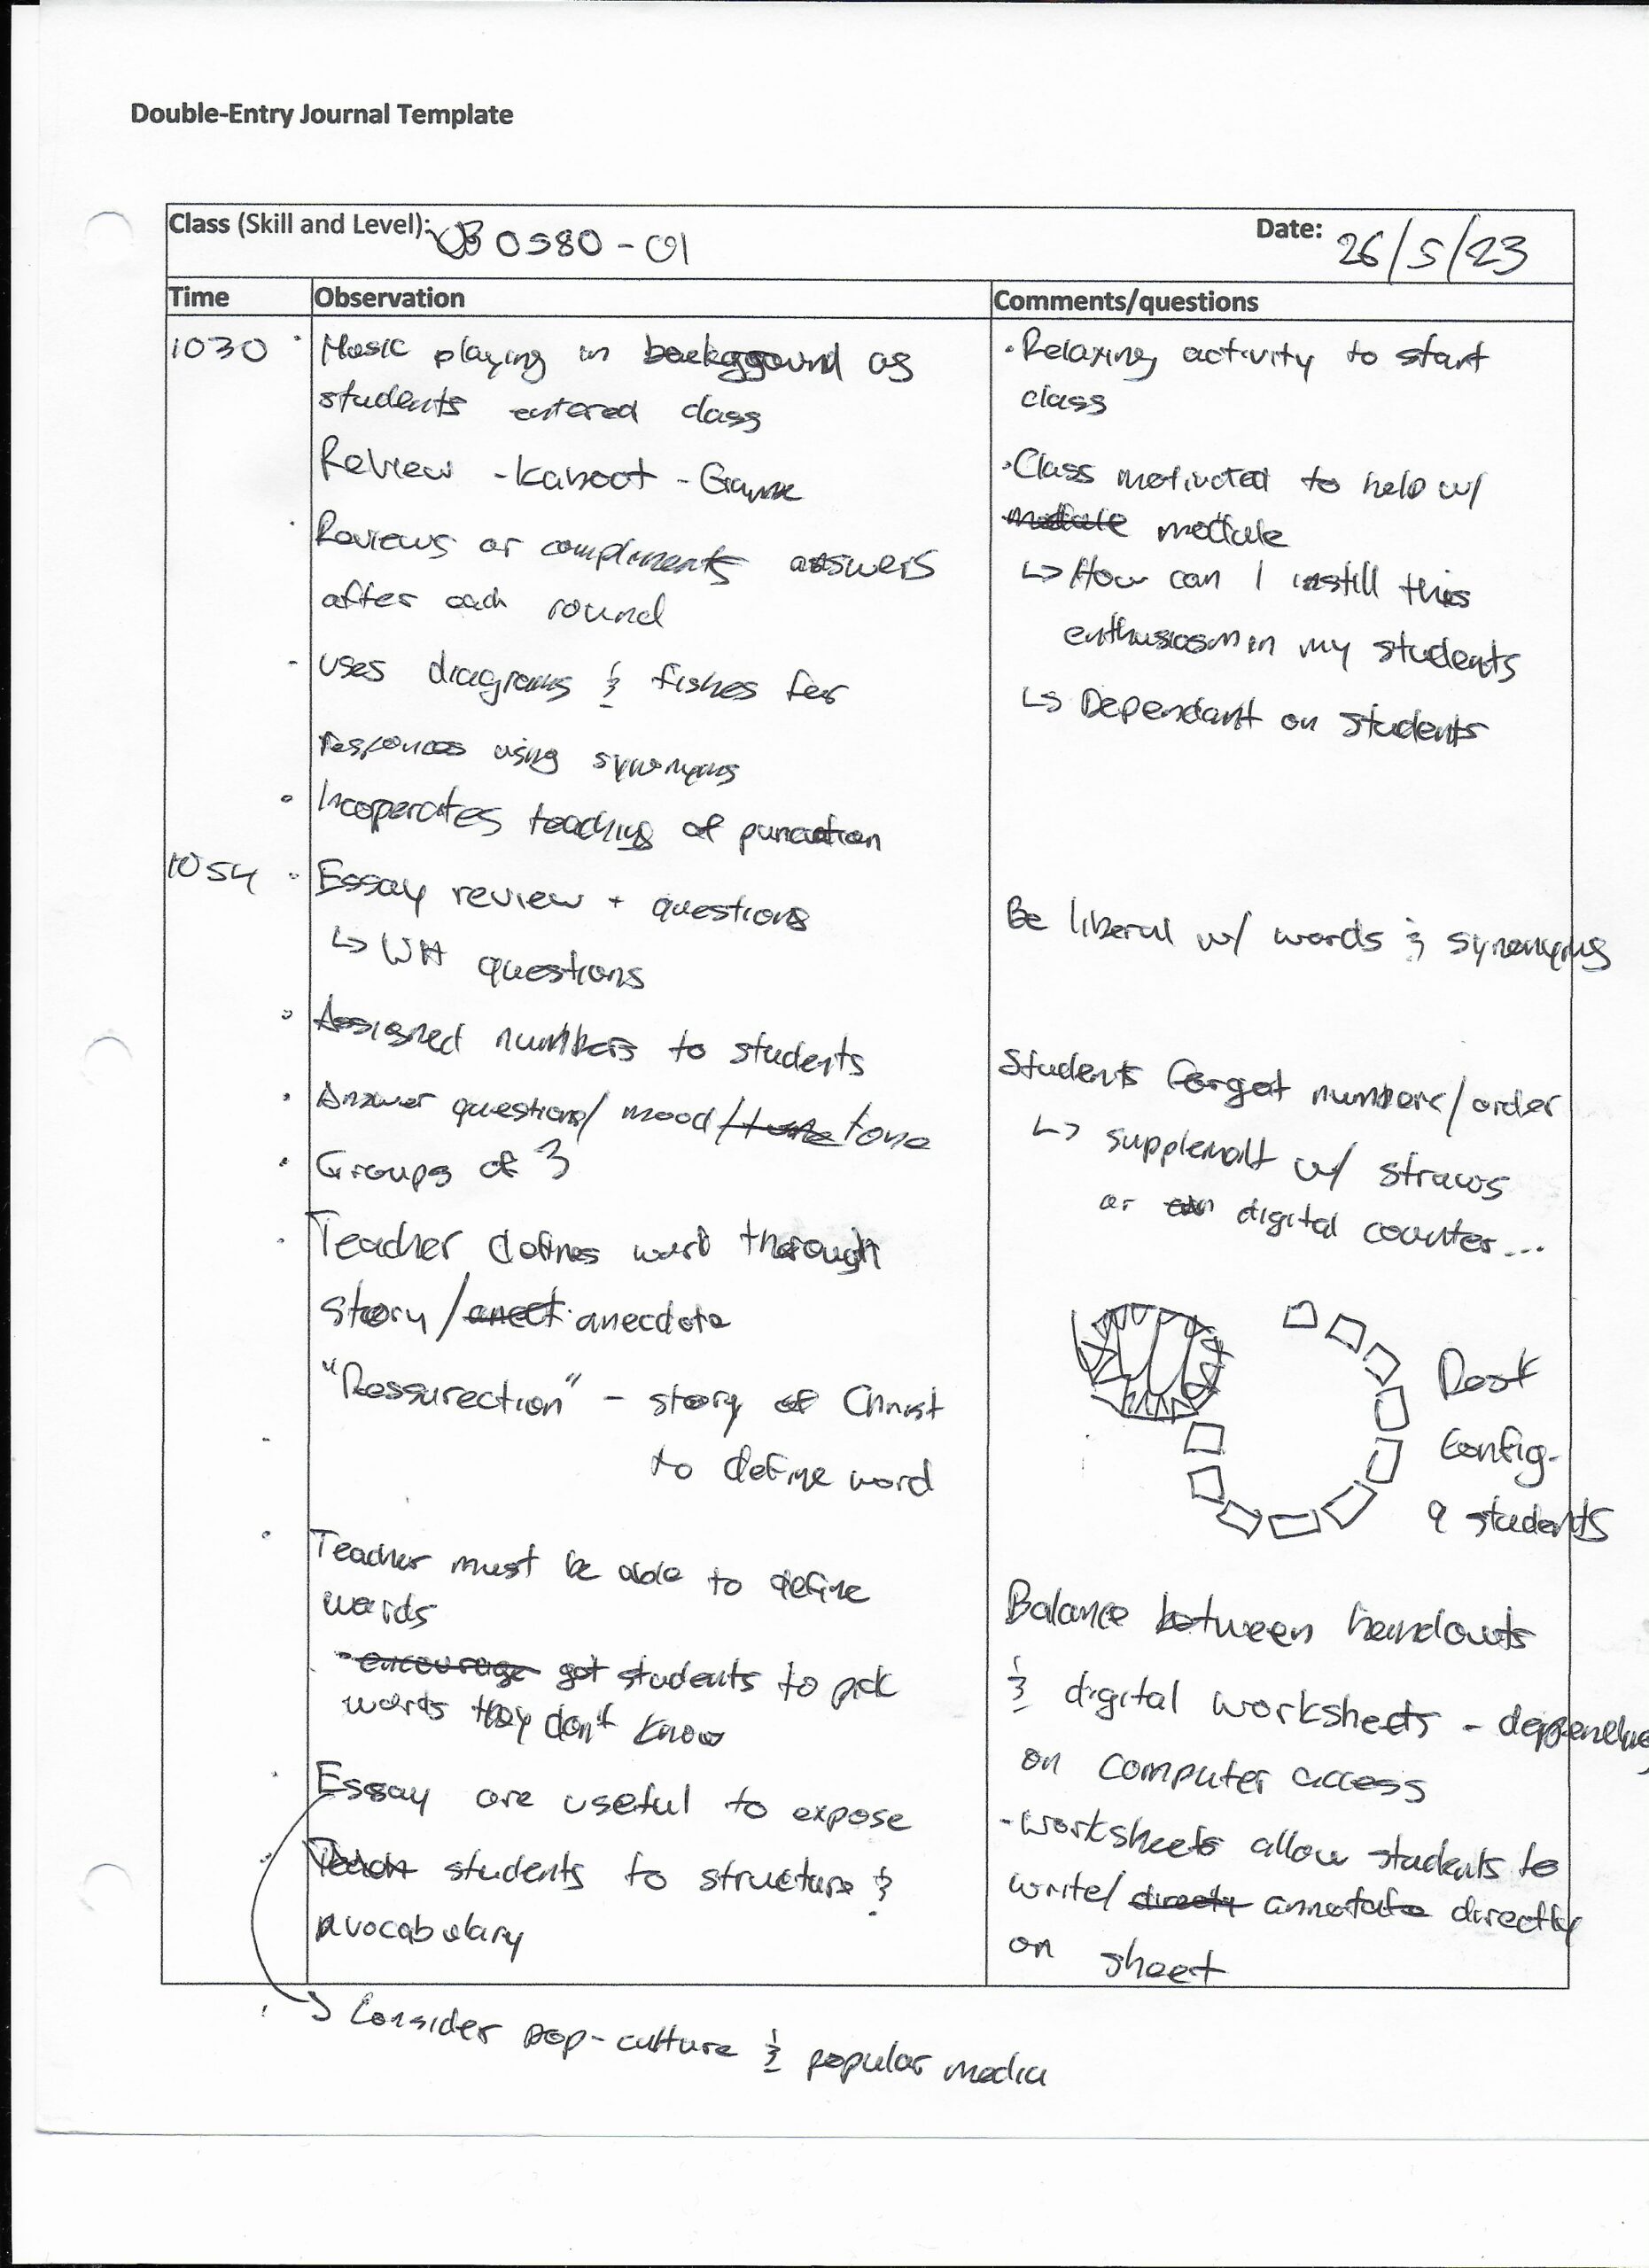 Double-Entry Journal Template
Class (Skill and Level): 0580-01 Date: 26/5/23
Time Observation Comments/questions
1030 · Music playing in background as
students entered class
Review - Kahoot - Game
· Reviews or compliments answers
after each round
- uses diagrams & fishes for
responses using synonyms
· Incoperates teaching of
1054 · Essay review + questions
↳ WH questions
· Assigned numbers to students
· Answer questions/ mood/ tone
· Groups of 3
· Teacher defines word through
story/ anecdote
"Ressurection" - story of Christ
to define word
· Teacher must be able to define
words
- got students to pick
words they don't know
· Essay are useful to expose
students to structure &
vocabulary
→ Consider pop-culture & popular media
· Relaxing activity to start
class
· Class motivated to help w/
module
↳ How can I instill this
enthusiasm in my students
↳ Dependant on students
Be liberal w/ words & synonyms
Students forgot numbers/order
↳ supplemont w/ straws
or digital counter...
Desk
Config-
9 students
Balance between handouts
& digital worksheets - depending
on computer access
- worksheets allow students to
write/ annotate directly
on sheet